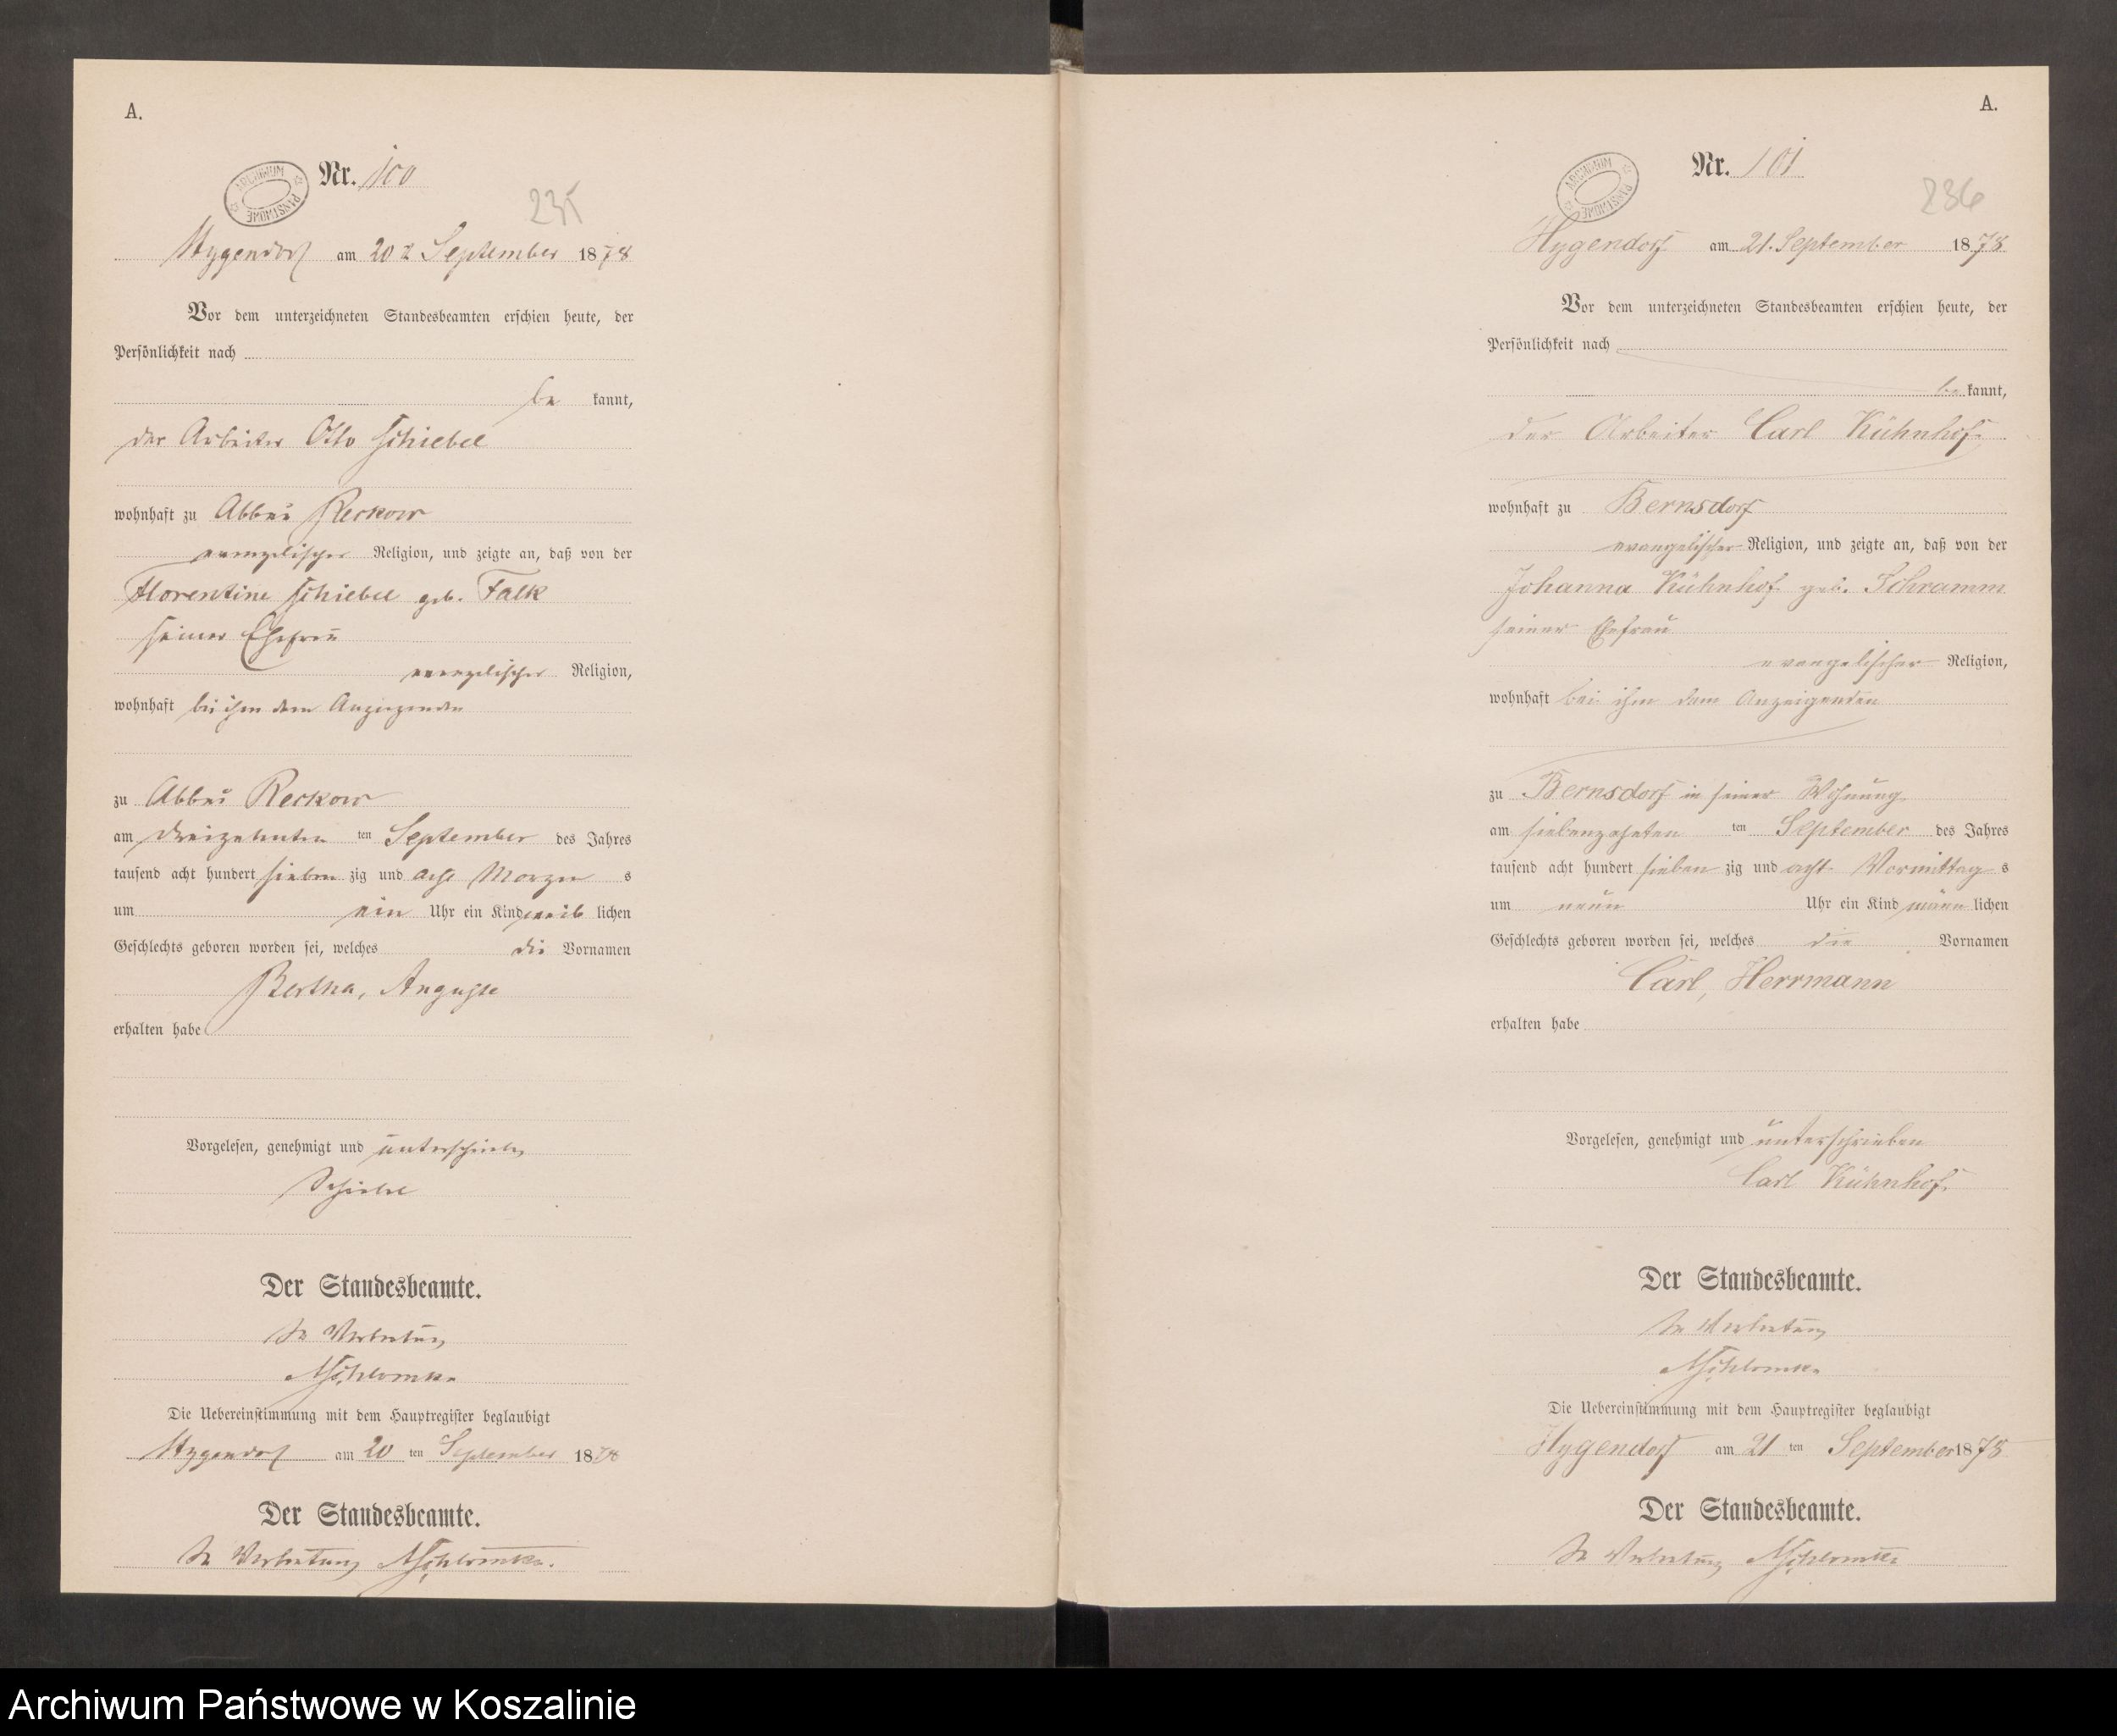 A.
ARCHIWUM PAŃSTWOWE
Nr. 100
235
Hygendorf am 20 t September 1878
Vor dem unterzeichneten Standesbeamten erschien heute, der
Persönlichkeit nach
be kannt,
der Arbeiter Otto Schiebel
wohnhaft zu Abbau Reckow
evangelischer Religion, und zeigte an, daß von der
Florentine Schiebel geb. Falk
seiner Ehefrau
evangelischer Religion,
wohnhaft bei ihm dem Anzeigenden
zu Abbau Reckow
am dreizehnten ten September des Jahres
tausend acht hundert sieben zig und acht Morgen s
um ein Uhr ein Kind weib lichen
Geschlechts geboren worden sei, welches die Vornamen
Bertha, Auguste
erhalten habe
Vorgelesen, genehmigt und unterschrieben
Schiebel
Der Standesbeamte.
In Vertretung
Die Uebereinstimmung mit dem Hauptregister beglaubigt
Hygendorf am 20 ten September 1878
Der Standesbeamte.
In Vertretung
A.
ARCHIWUM PAŃSTWOWE
Nr. 101
236
Hygendorf am 21. September 1878
Vor dem unterzeichneten Standesbeamten erschien heute, der
Persönlichkeit nach
be kannt,
der Arbeiter Carl Kühnhof
wohnhaft zu Bernsdorf
evangelischer Religion, und zeigte an, daß von der
Johanna Kühnhof geb. Schramm
seiner Ehefrau
evangelischer Religion,
wohnhaft bei ihm dem Anzeigenden
zu Bernsdorf in seiner Wohnung
am siebenzehnten ten September des Jahres
tausend acht hundert sieben zig und acht Vormittag s
um neun Uhr ein Kind männ lichen
Geschlechts geboren worden sei, welches die Vornamen
Carl, Herrmann
erhalten habe
Vorgelesen, genehmigt und unterschrieben
Carl Kühnhof.
Der Standesbeamte.
In Vertretung
Die Uebereinstimmung mit dem Hauptregister beglaubigt
Hygendorf am 21 ten September 1878
Der Standesbeamte.
In Vertretung
Archiwum Państwowe w Koszalinie